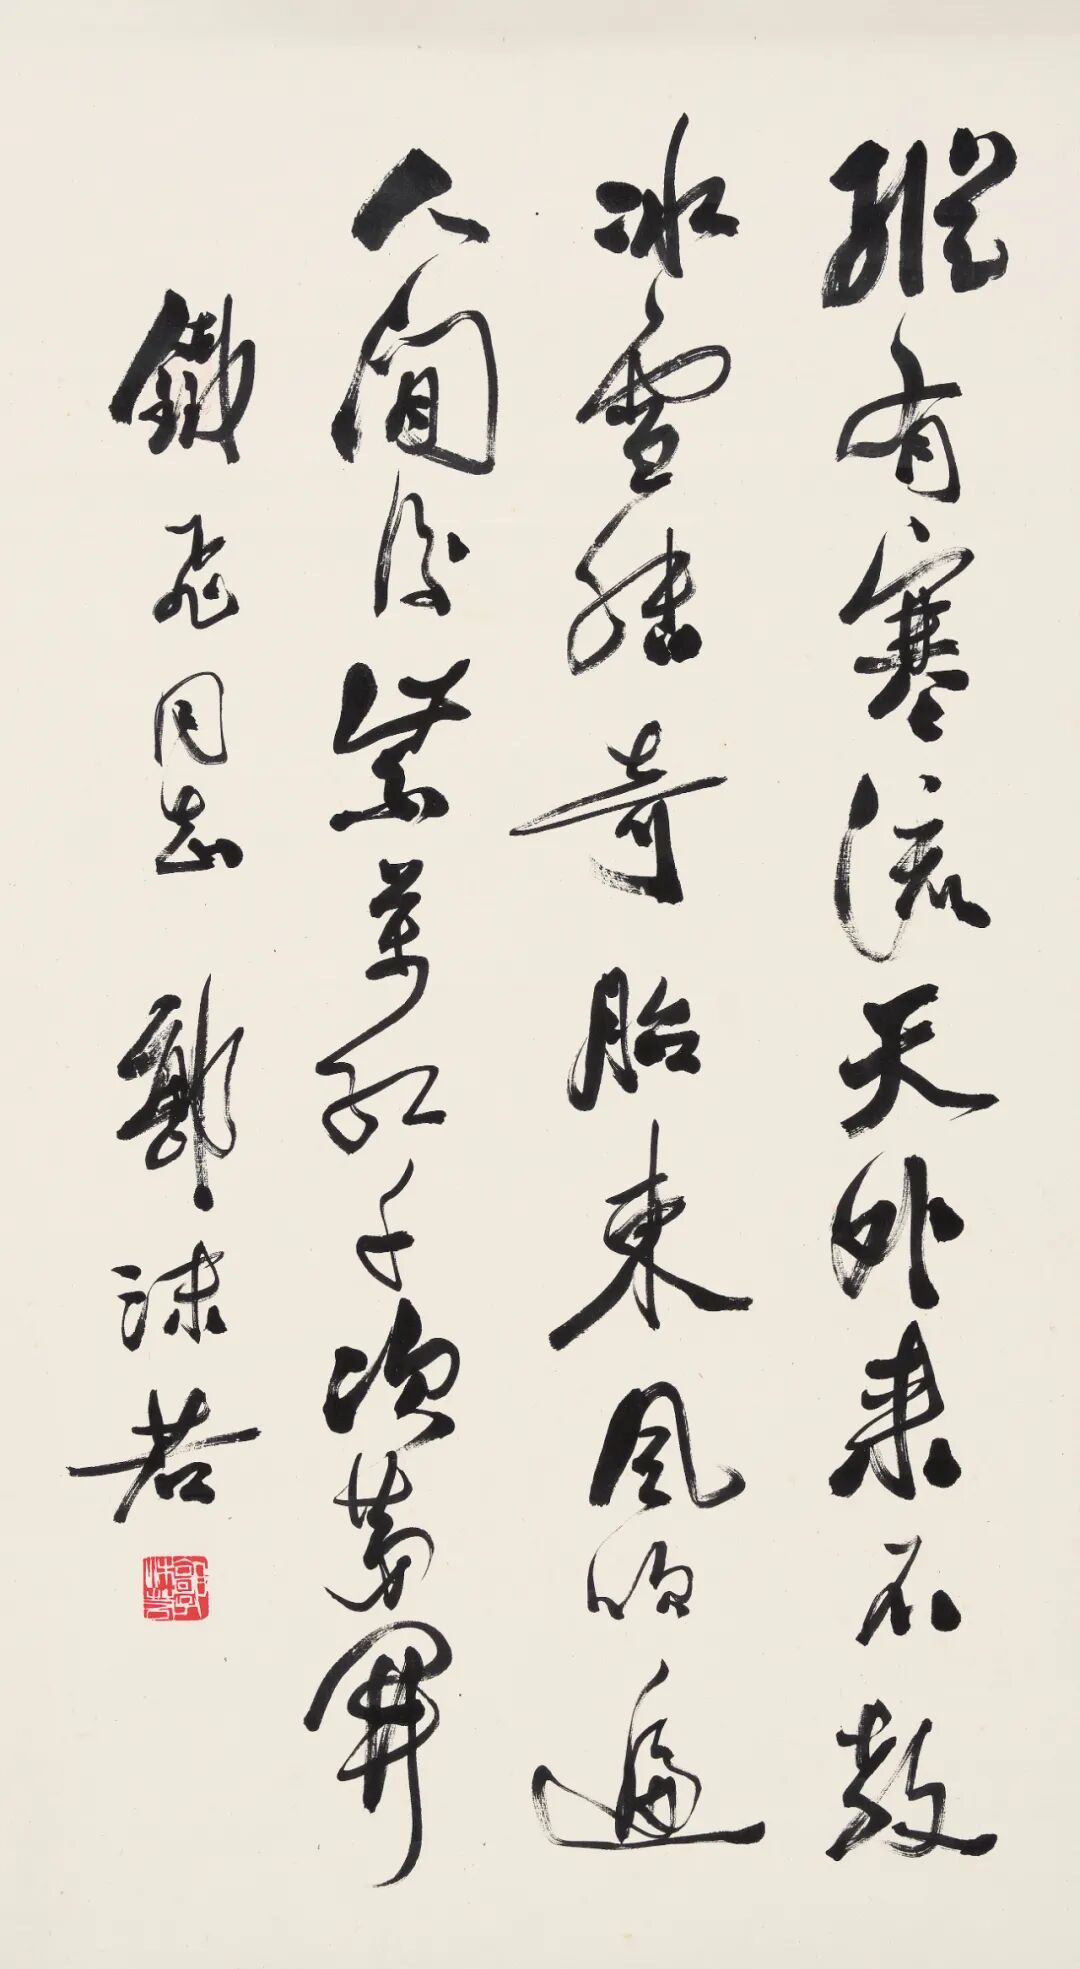 縱有寒流天外來不教
冰雪結奇胎東風吹遍
人間後紫萬紅千次第開
鐵飛同志 郭沫若
郭沫若